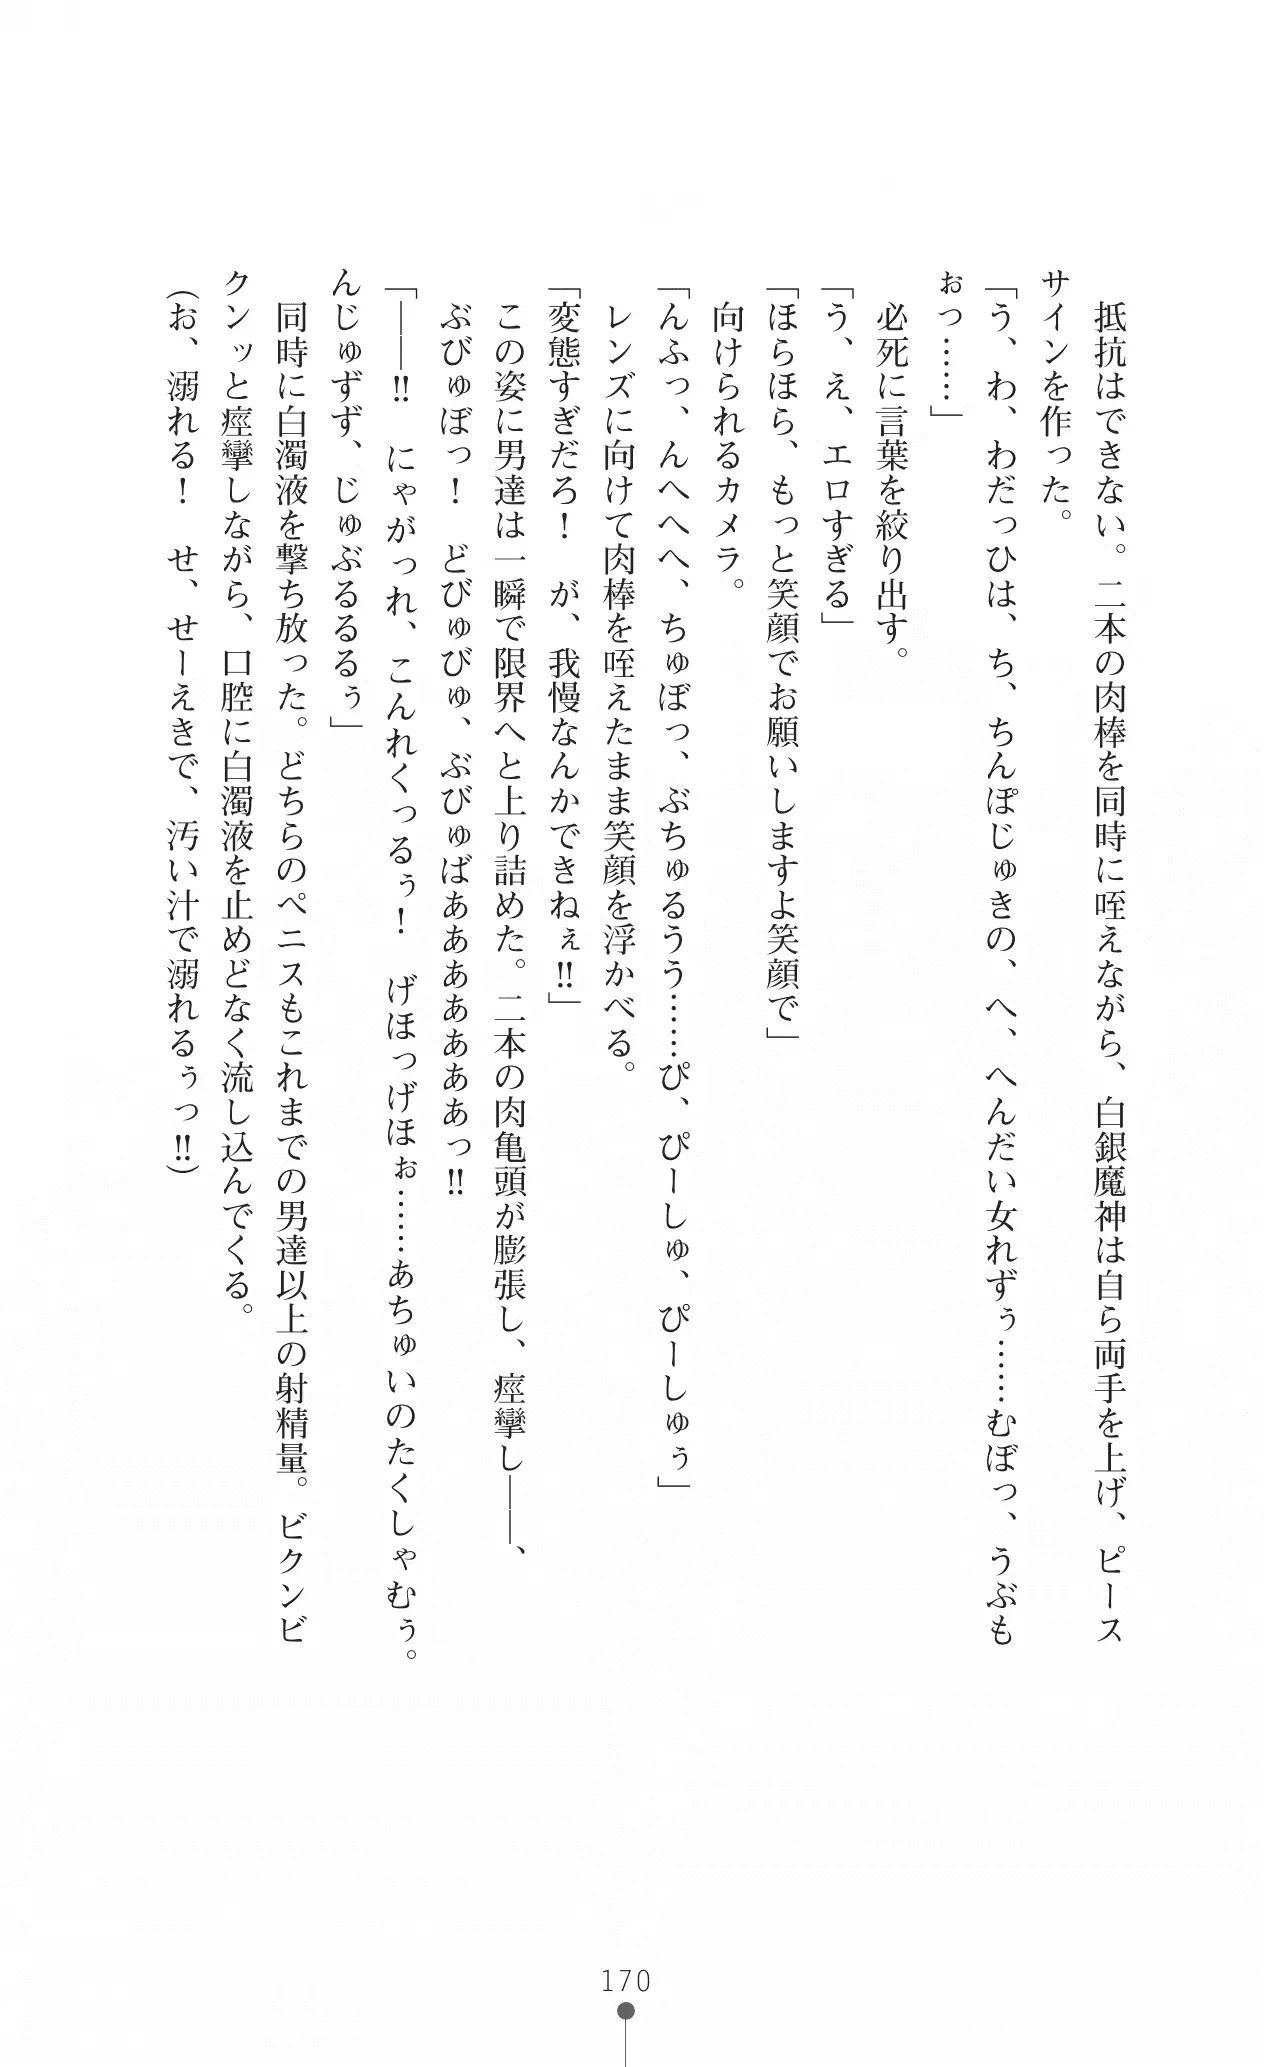 抵抗はできない。二本の肉棒を同時に咥えながら、白銀魔神は自ら両手を上げ、ピース
サインを作った。
「う、わ、わだっひは、ち、ちんぽじゅきの、へ、へんだい女れずぅ……むぼっ、うぶも
ぉっ……」
必死に言葉を絞り出す。
「う、え、エロすぎる」
「ほらほら、もっと笑顔でお願いしますよ笑顔で」
向けられるカメラ。
「んふっ、んへへへ、ちゅぼっ、ぶちゅるうう……ぴ、ぴーしゅ、ぴーしゅぅ」
レンズに向けて肉棒を咥えたまま笑顔を浮かべる。
「変態すぎだろ！　が、我慢なんかできねぇ‼」
この姿に男達は一瞬で限界へと上り詰めた。二本の肉亀頭が膨張し、痙攣し――、
ぶびゅぼっ！　どびゅびゅ、ぶびゅばあああああああっ‼
「――‼　にゃがっれ、こんれくっるぅ！　げほっげほぉ……あちゅいのたくしゃむぅ。
んじゅずず、じゅぶるるるぅ」
同時に白濁液を撃ち放った。どちらのペニスもこれまでの男達以上の射精量。ビクンビ
クンッと痙攣しながら、口腔に白濁液を止めどなく流し込んでくる。
（お、溺れる！　せ、せーえきで、汚い汁で溺れるぅっ‼）
170